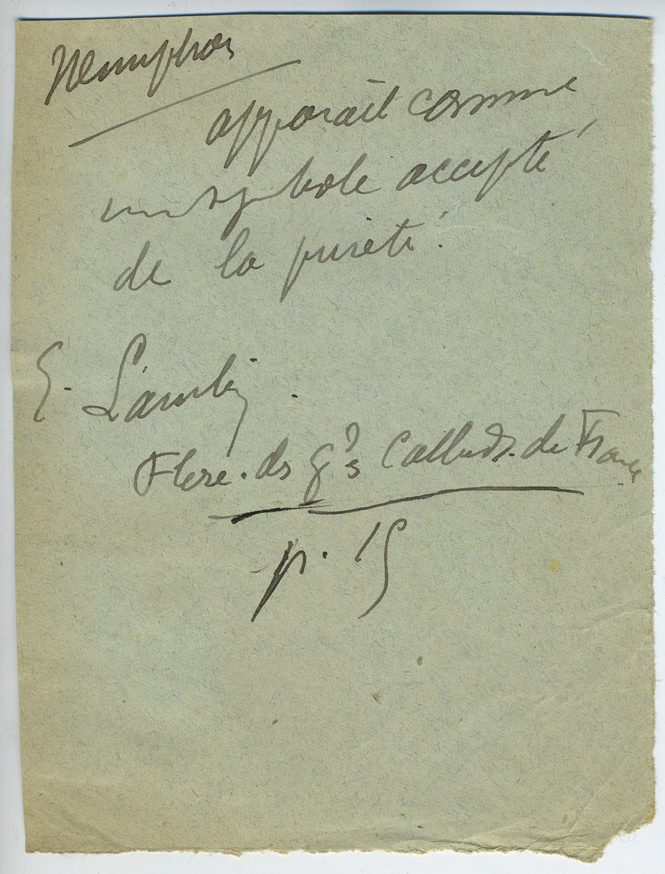 Nénuphar
apparait comme
un symbole accepté
de la pureté.
E. Lambin.
Flore. ds gds Cathedr. de France
p. 15